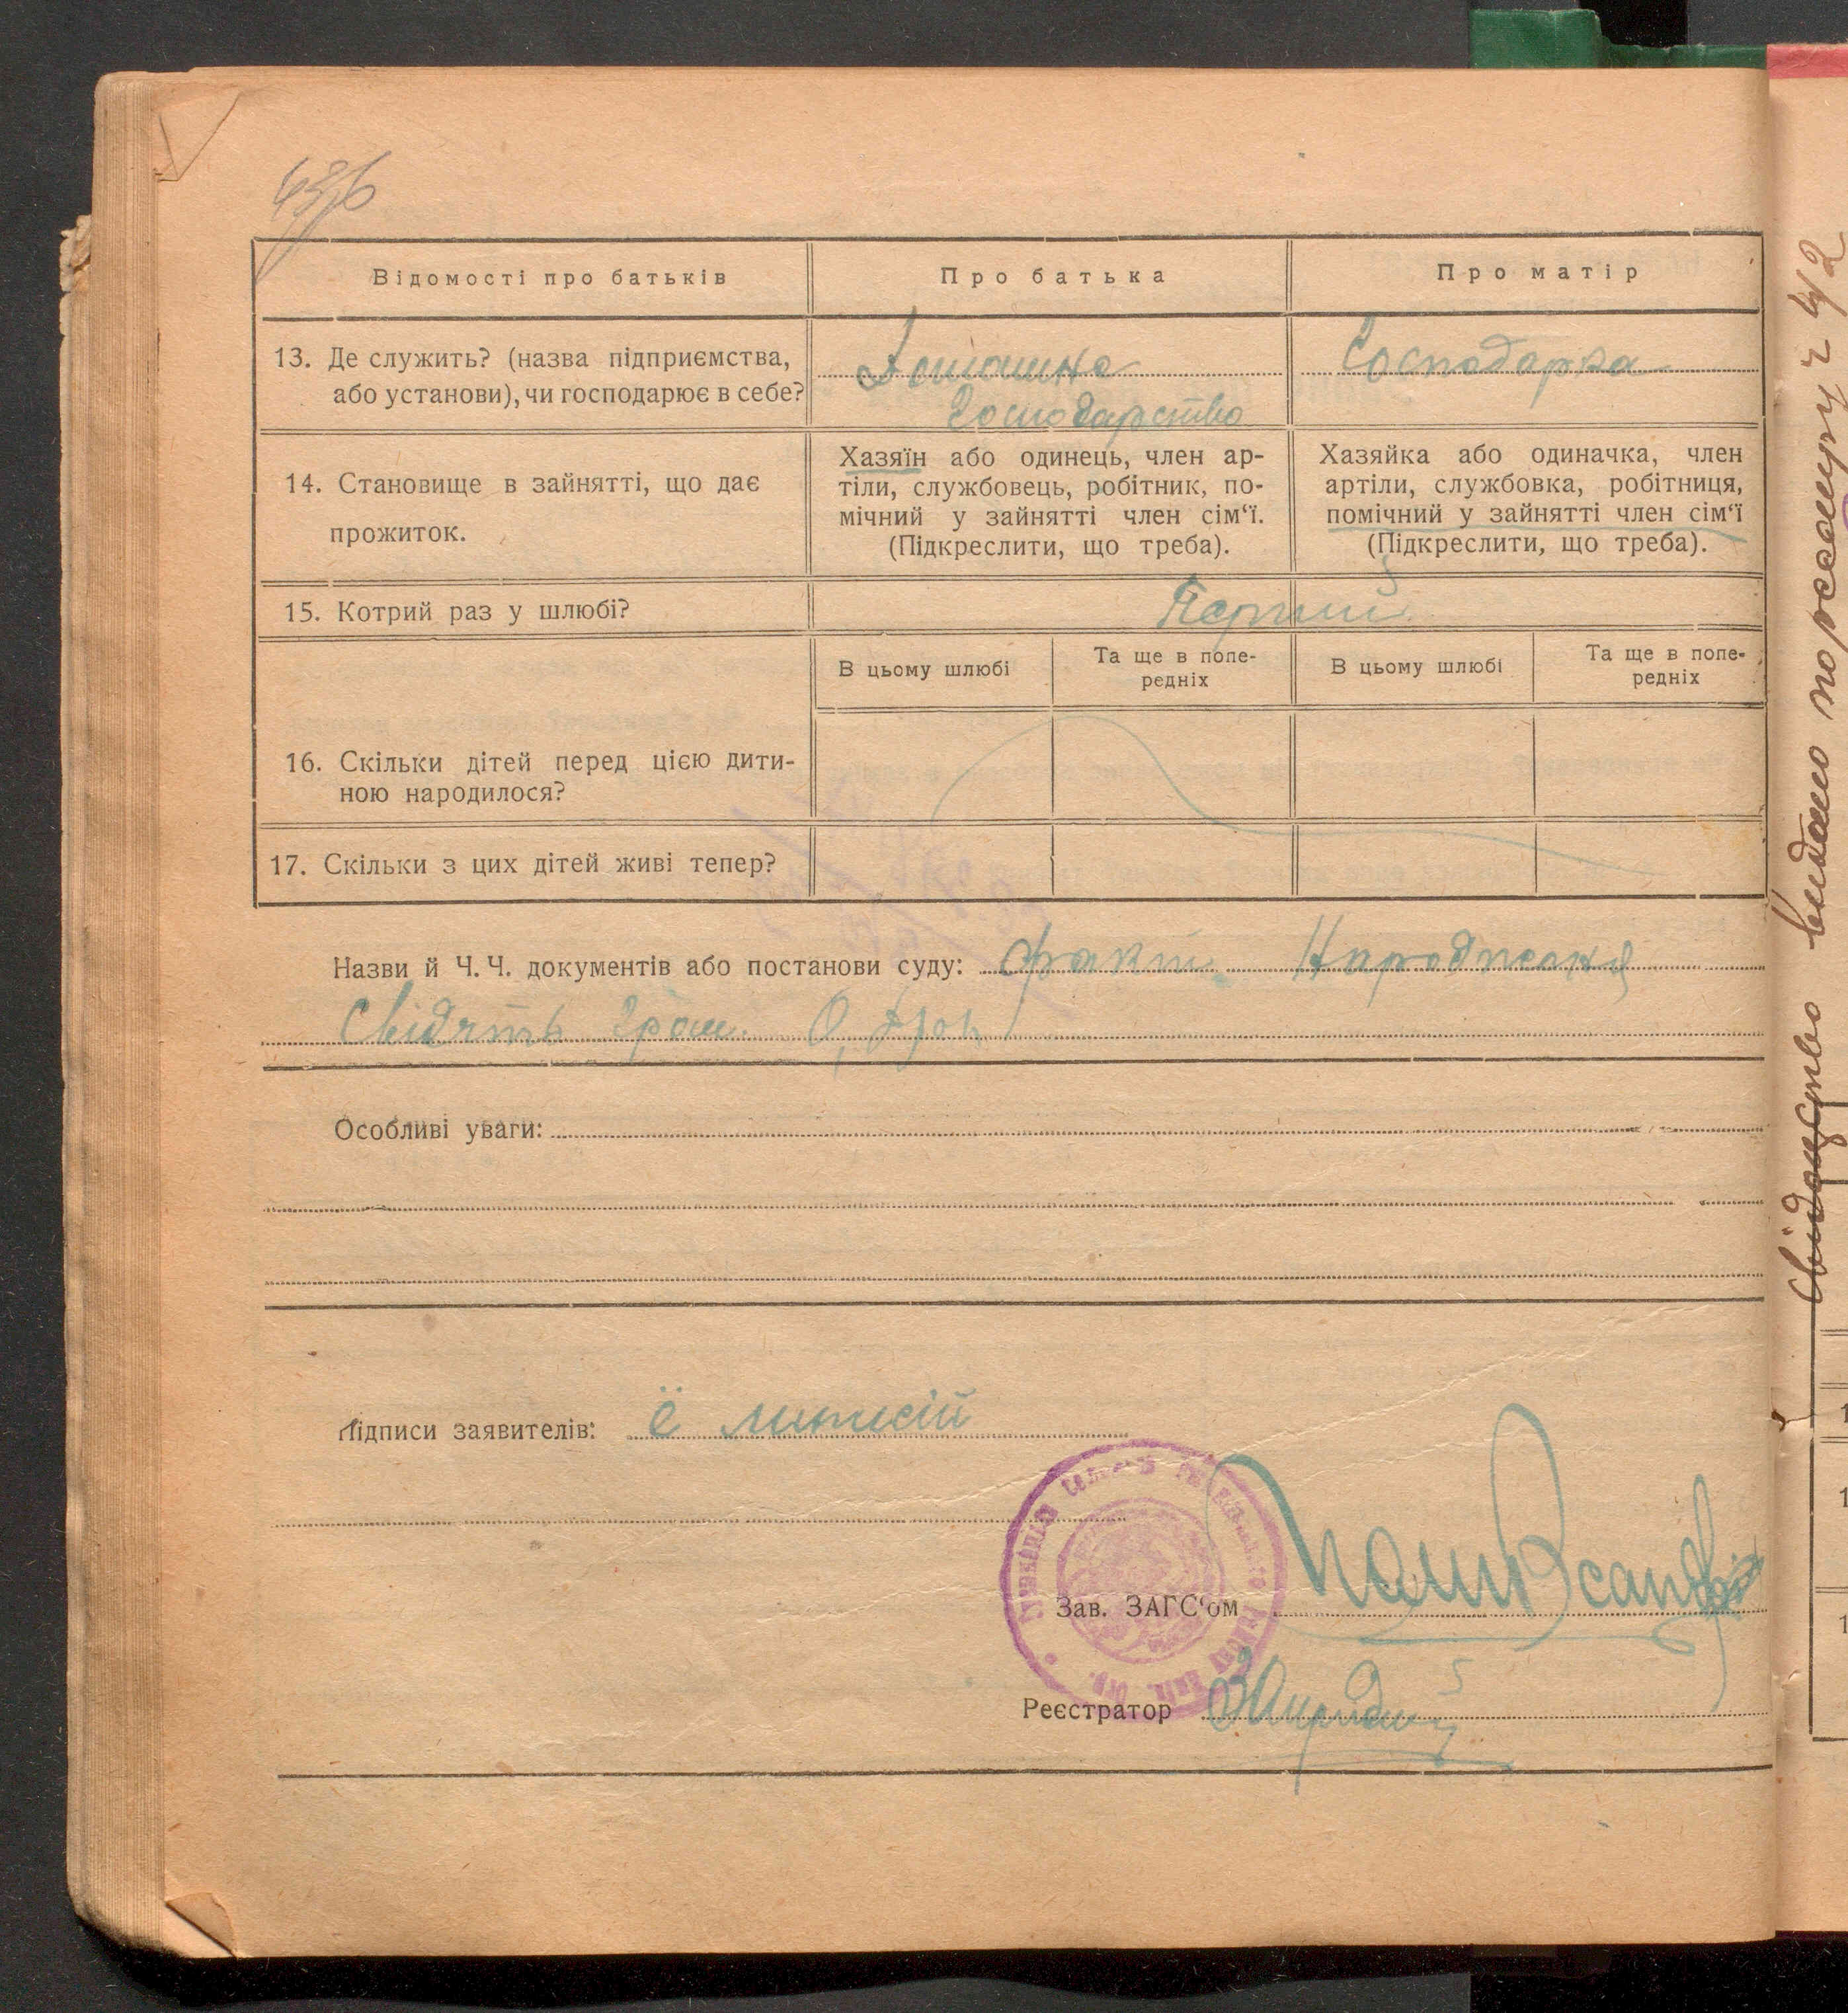 Відомості про батьків
Про батька
Про матір
13. Де служить? (назва підприємства,
або установи), чи господарює в себе?
Домашнє
Господарство
Господарка
14. Становище в зайнятті, що дає
прожиток.
Хазяїн або одинець, член ар-
тіли, службовець, робітник, по-
мічний у зайнятті член сім‘ї.
(Підкреслити, що треба).
Хазяйка або одиначка, член
артіли, службовка, робітниця,
помічний у зайнятті член сім‘ї
(Підкреслити, що треба).
15. Котрий раз у шлюбі?
Перший
В цьому шлюбі
Та ще в попе-
редніх
В цьому шлюбі
Та ще в попе-
редніх
16. Скільки дітей перед цією дити-
ною народилося?
17. Скільки з цих дітей живі тепер?
Назви й Ч. Ч. документів або постанови суду: факт Народження
Свідять гром.
Особливі уваги:
Підписи заявителів: Є
Зав. ЗАГС‘ом
Реєстратор
видано